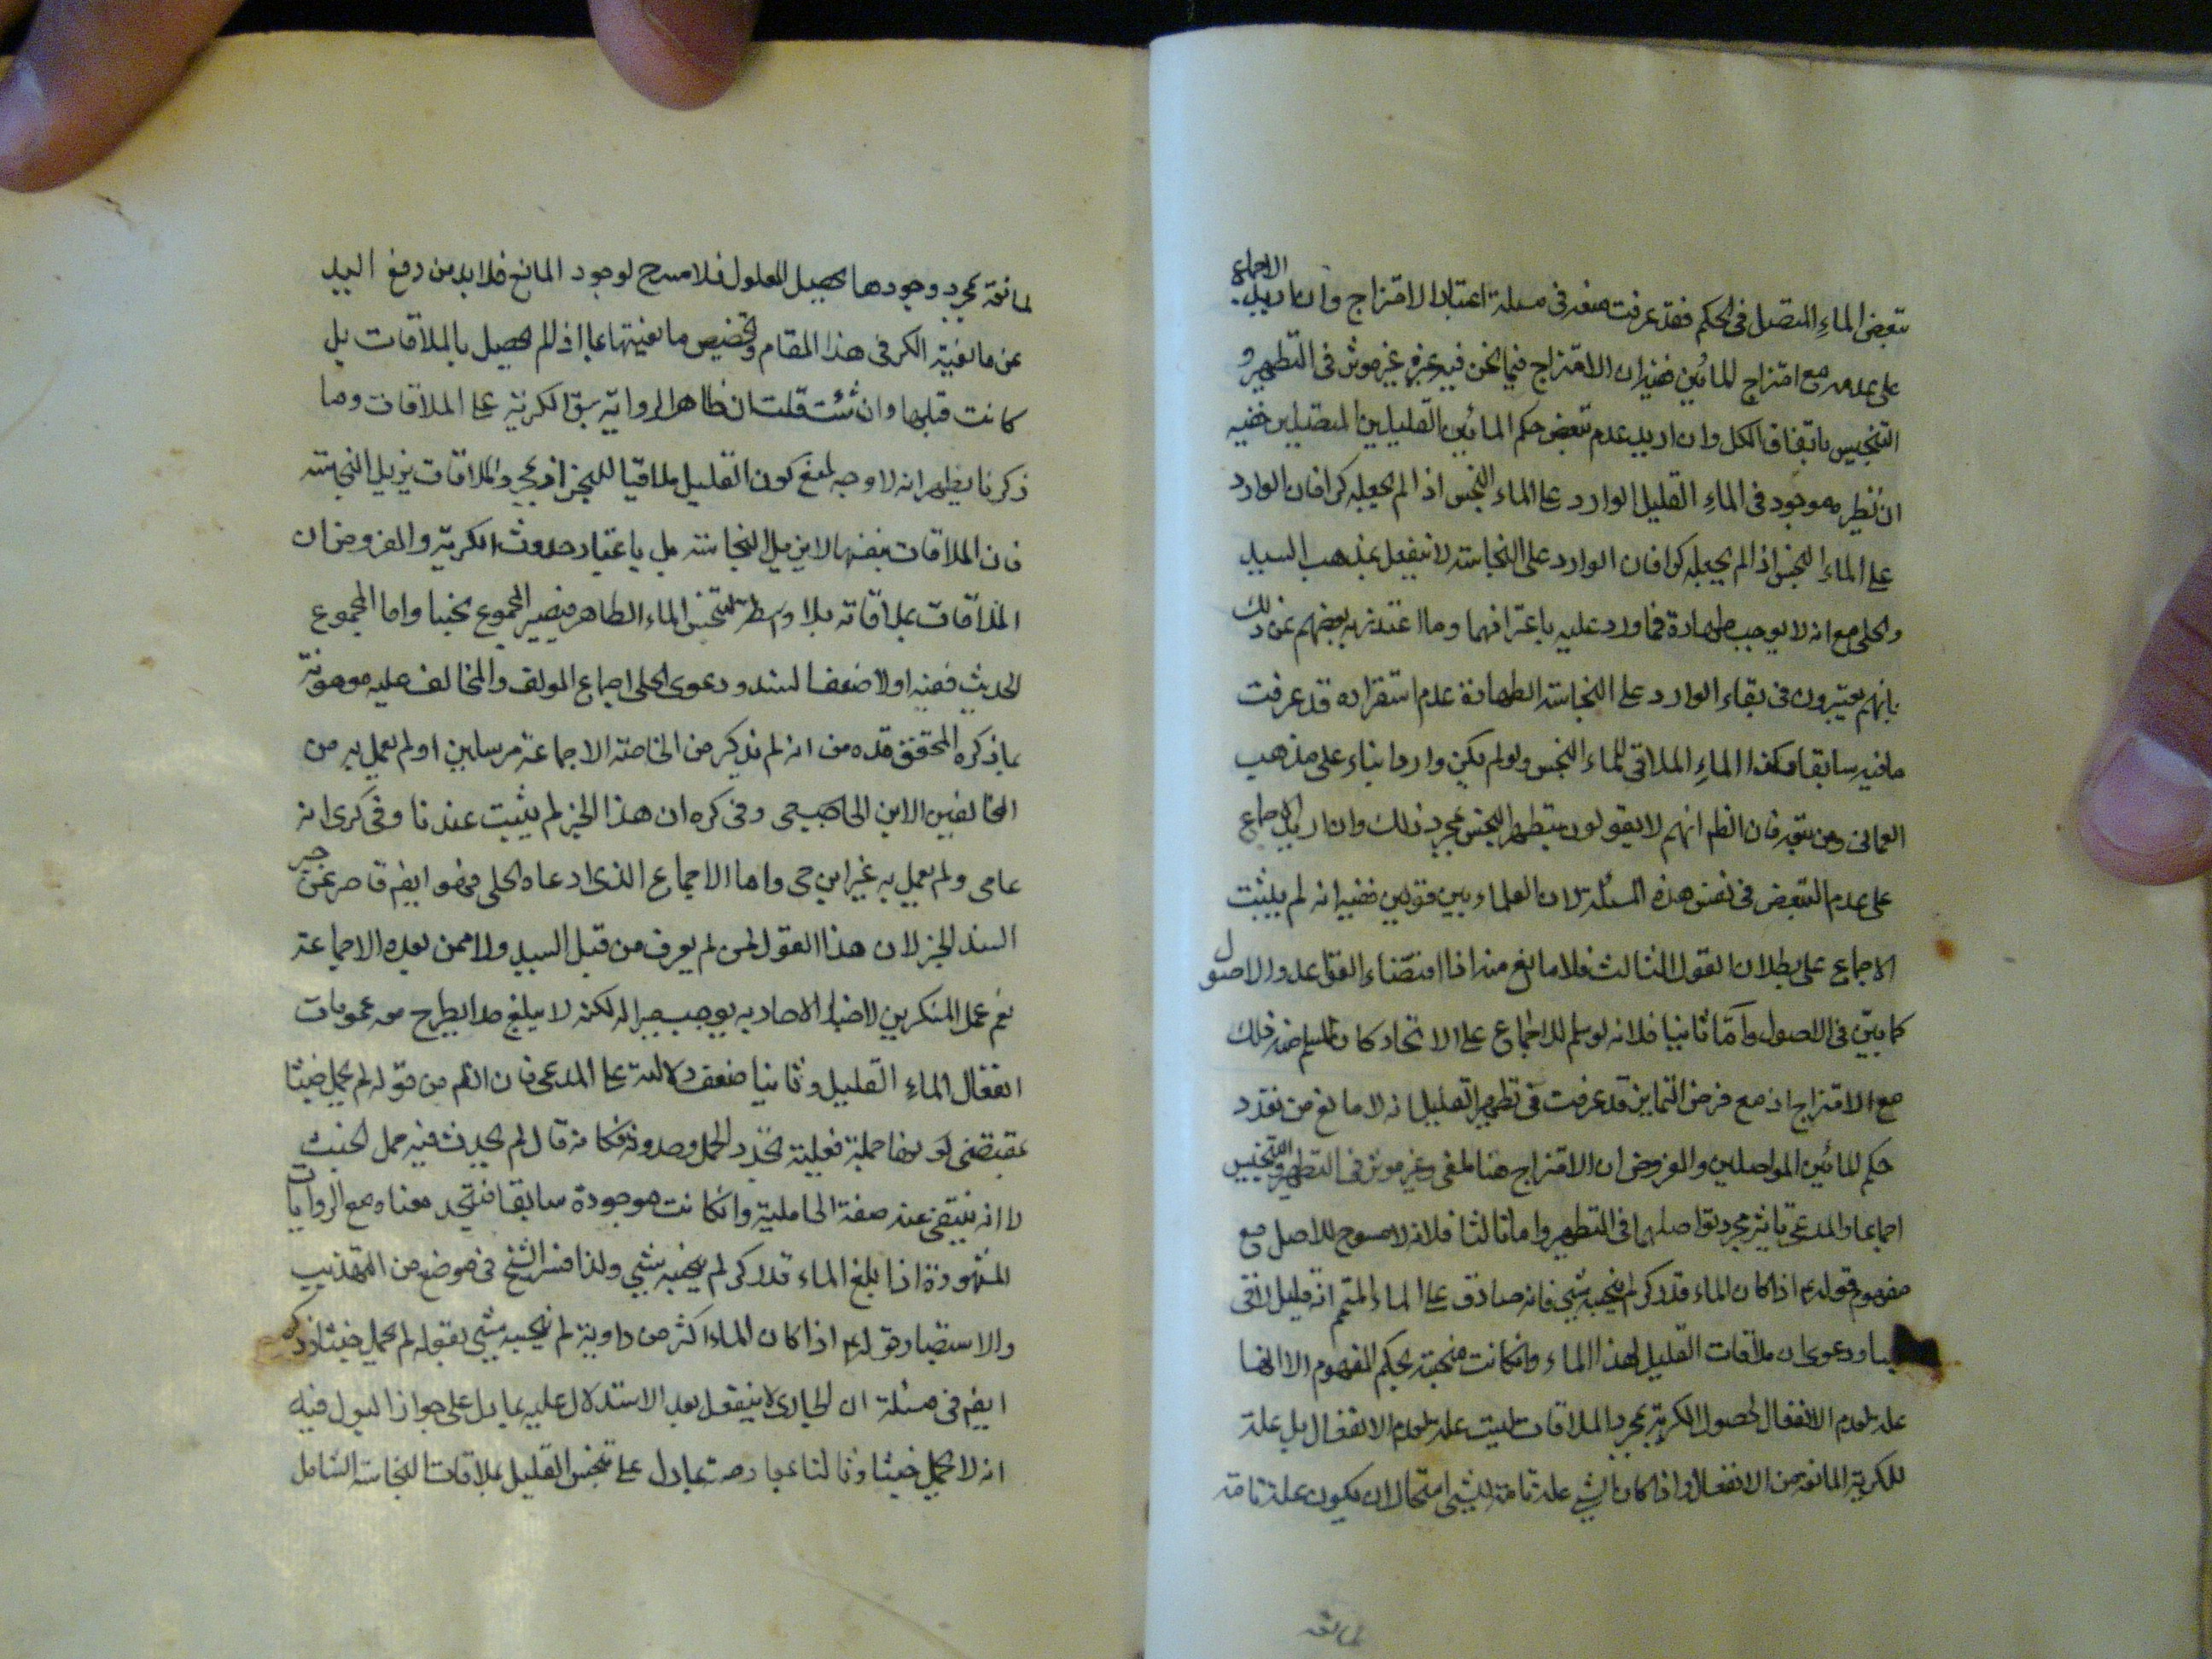 تبعض الماء المتصل في الحكم فقد عرفت منعه في مسئلة اعتبار الامتزاج وان اريد الاجماع
على عدمه مع امتزاج المائين ففيه ان الامتزاج فيما نحن فيه غير موثر في التطهير و
التنجيس باتفاق الكل وان اريد عدم تبعض حكم المائين القليلين المتصلين ففيه
ان نظيره موجود في الماء القليل الوارد على الماء النجس اذا لم يجعله كرا فان الوارد
على الماء النجس اذا لم يجعله كرا فان الوارد على النجاسة لا ينفعل بمذهب السيد
والحلي مع انه لا يوجب طهارة ما ورد عليه باعترافهما وما اعتذر به بعضهم عن ذلك
بانهم يعتبرون في بقاء الوارد على النجاسة الطهارة عدم استقراره قد عرفت
ما فيه سابقا وكذا الماء الملاقي للماء النجس ولو لم يكن واردا بناء على مذهب
العماني ومن تبعه فان الظ انهم لا يقولون بتطهر النجس بمجرد ذلك وان اريد الاجماع
على عدم التبعض في نفس هذه المسئلة لان العلماء بين قولين ففيه انه لم يثبت
الاجماع على بطلان القول الثالث فلا مانع منه اذا اقتضاه القواعد والاصول
كما بين في الاصول واما ثانيا فلانه لو سلم الاجماع على الاتحاد كان المسلم منه ذلك
مع الامتزاج اذ مع فرض التمايز قد عرفت في تطهير القليل انه لا مانع من تعدد
حكم المائين المواصلين والمفروض ان الامتزاج هنا ملغى وغير موثر في التطهير والتنجيس
اجماعا والمدعى تاثير مجرد تواصلهما في التطهير واما ثالثا فلانه لا مسرح للاصل مع
مفهوم قوله ع اذا كان الماء قدر كر لم ينجسه شيء فانه صادق على الماء المتمم انه قليل لاقى
نجسا ودعوى ان ملاقات القليل لهذا الماء وان كانت منجسة بحكم المفهوم الا انها
علة لعدم الانفعال لحصول الكرية بمجرد الملاقات ليست علة لعدم الانفعال بل علة
للكرية المانعة من الانفعال واذا كان الشيء علة تامة لشيء استحال ان يكون علة تامة
لمانعه
لمانعة بمجرد وجودها يحصل المعلول فلا مسرح لوجود المانع فلا بد من رفع اليد
عن مانعية الكر في هذا المقام وتخصيص مانعيتها بما اذا لم يحصل بالملاقات بل
كانت قبلها وان شئت قلت ان ظاهر الرواية سبق الكرية على الملاقات ومما
ذكرنا يظهر انه لا وجه لمنع كون القليل ملاقيا للنجس اذ بمجرد الملاقات يزيل النجاسة
فان الملاقات بنفسها لا يزيل النجاسة بل باعتبار حدوث الكرية والمفروض ان
الملاقات بملاقاته بلا واسطة تنجس الماء الطاهر فيصير المجموع نجسا واما المجموع
الحديث ففيه اولا ضعف السند ودعوى الحلي اجماع المولف والمخالف عليه موهونة
بما ذكره المحقق قده من انه لم يذكر من الخاصة الا جماعة مرسلين او لم يعمل به من
المخالفين الا ابن الحي وفي كره ان هذا الخبر لم يثبت عندنا وفي كرى انه
عامي ولم يعمل به غير ابن حي واما الاجماع الذي ادعاه الحلي فهو ايضا قاصر عن جبر
السند الخبر لان هذا القول لم يعرف من قبل السيد ولا ممن بعده الا جماعة
نعم عمل المنكرين لاخبار الاحاد به يوجب جبرا له لكنه لا يبلغ حدا يطرح معه عمومات
انفعال الماء القليل وثانيا ضعف دلالته على المدعى فان الظ من قوله لم يحمل خبثا
بمقتضى كونها جملة فعلية تجدد الحمل وحدوثه فكانه قال لم يحدث فيه حمل الخبث
لا انه ينتفى عنه صفة الحاملية وان كانت موجودة سابقا فيتحد معناه مع الروايات
المشهورة اذا بلغ الماء قدر كر لم ينجسه شيء ولذا فسر الشيخ في موضع من التهذيب
والاستبصار قوله ع اذا كان الماء اكثر من راوية لم ينجسه شيء بقوله لم يحمل خبثا ذكره
ايضا في مسئلة ان الجاري لا ينفعل بعد الاستدلال عليه بما يدل على جواز البول فيه
انه لا يحمل خبثا وثالثا معارضته بما دل على تنجس القليل بملاقات النجاسة الشامل